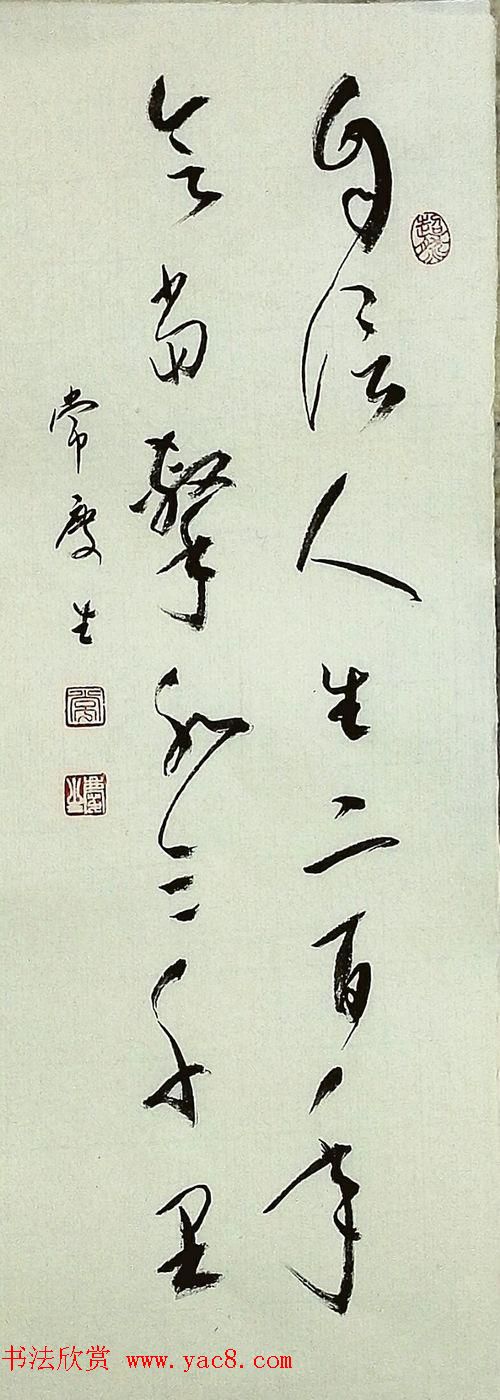 自信人生二百年
会當擊水三千里
常慶生
书法欣赏 www.yac8.com